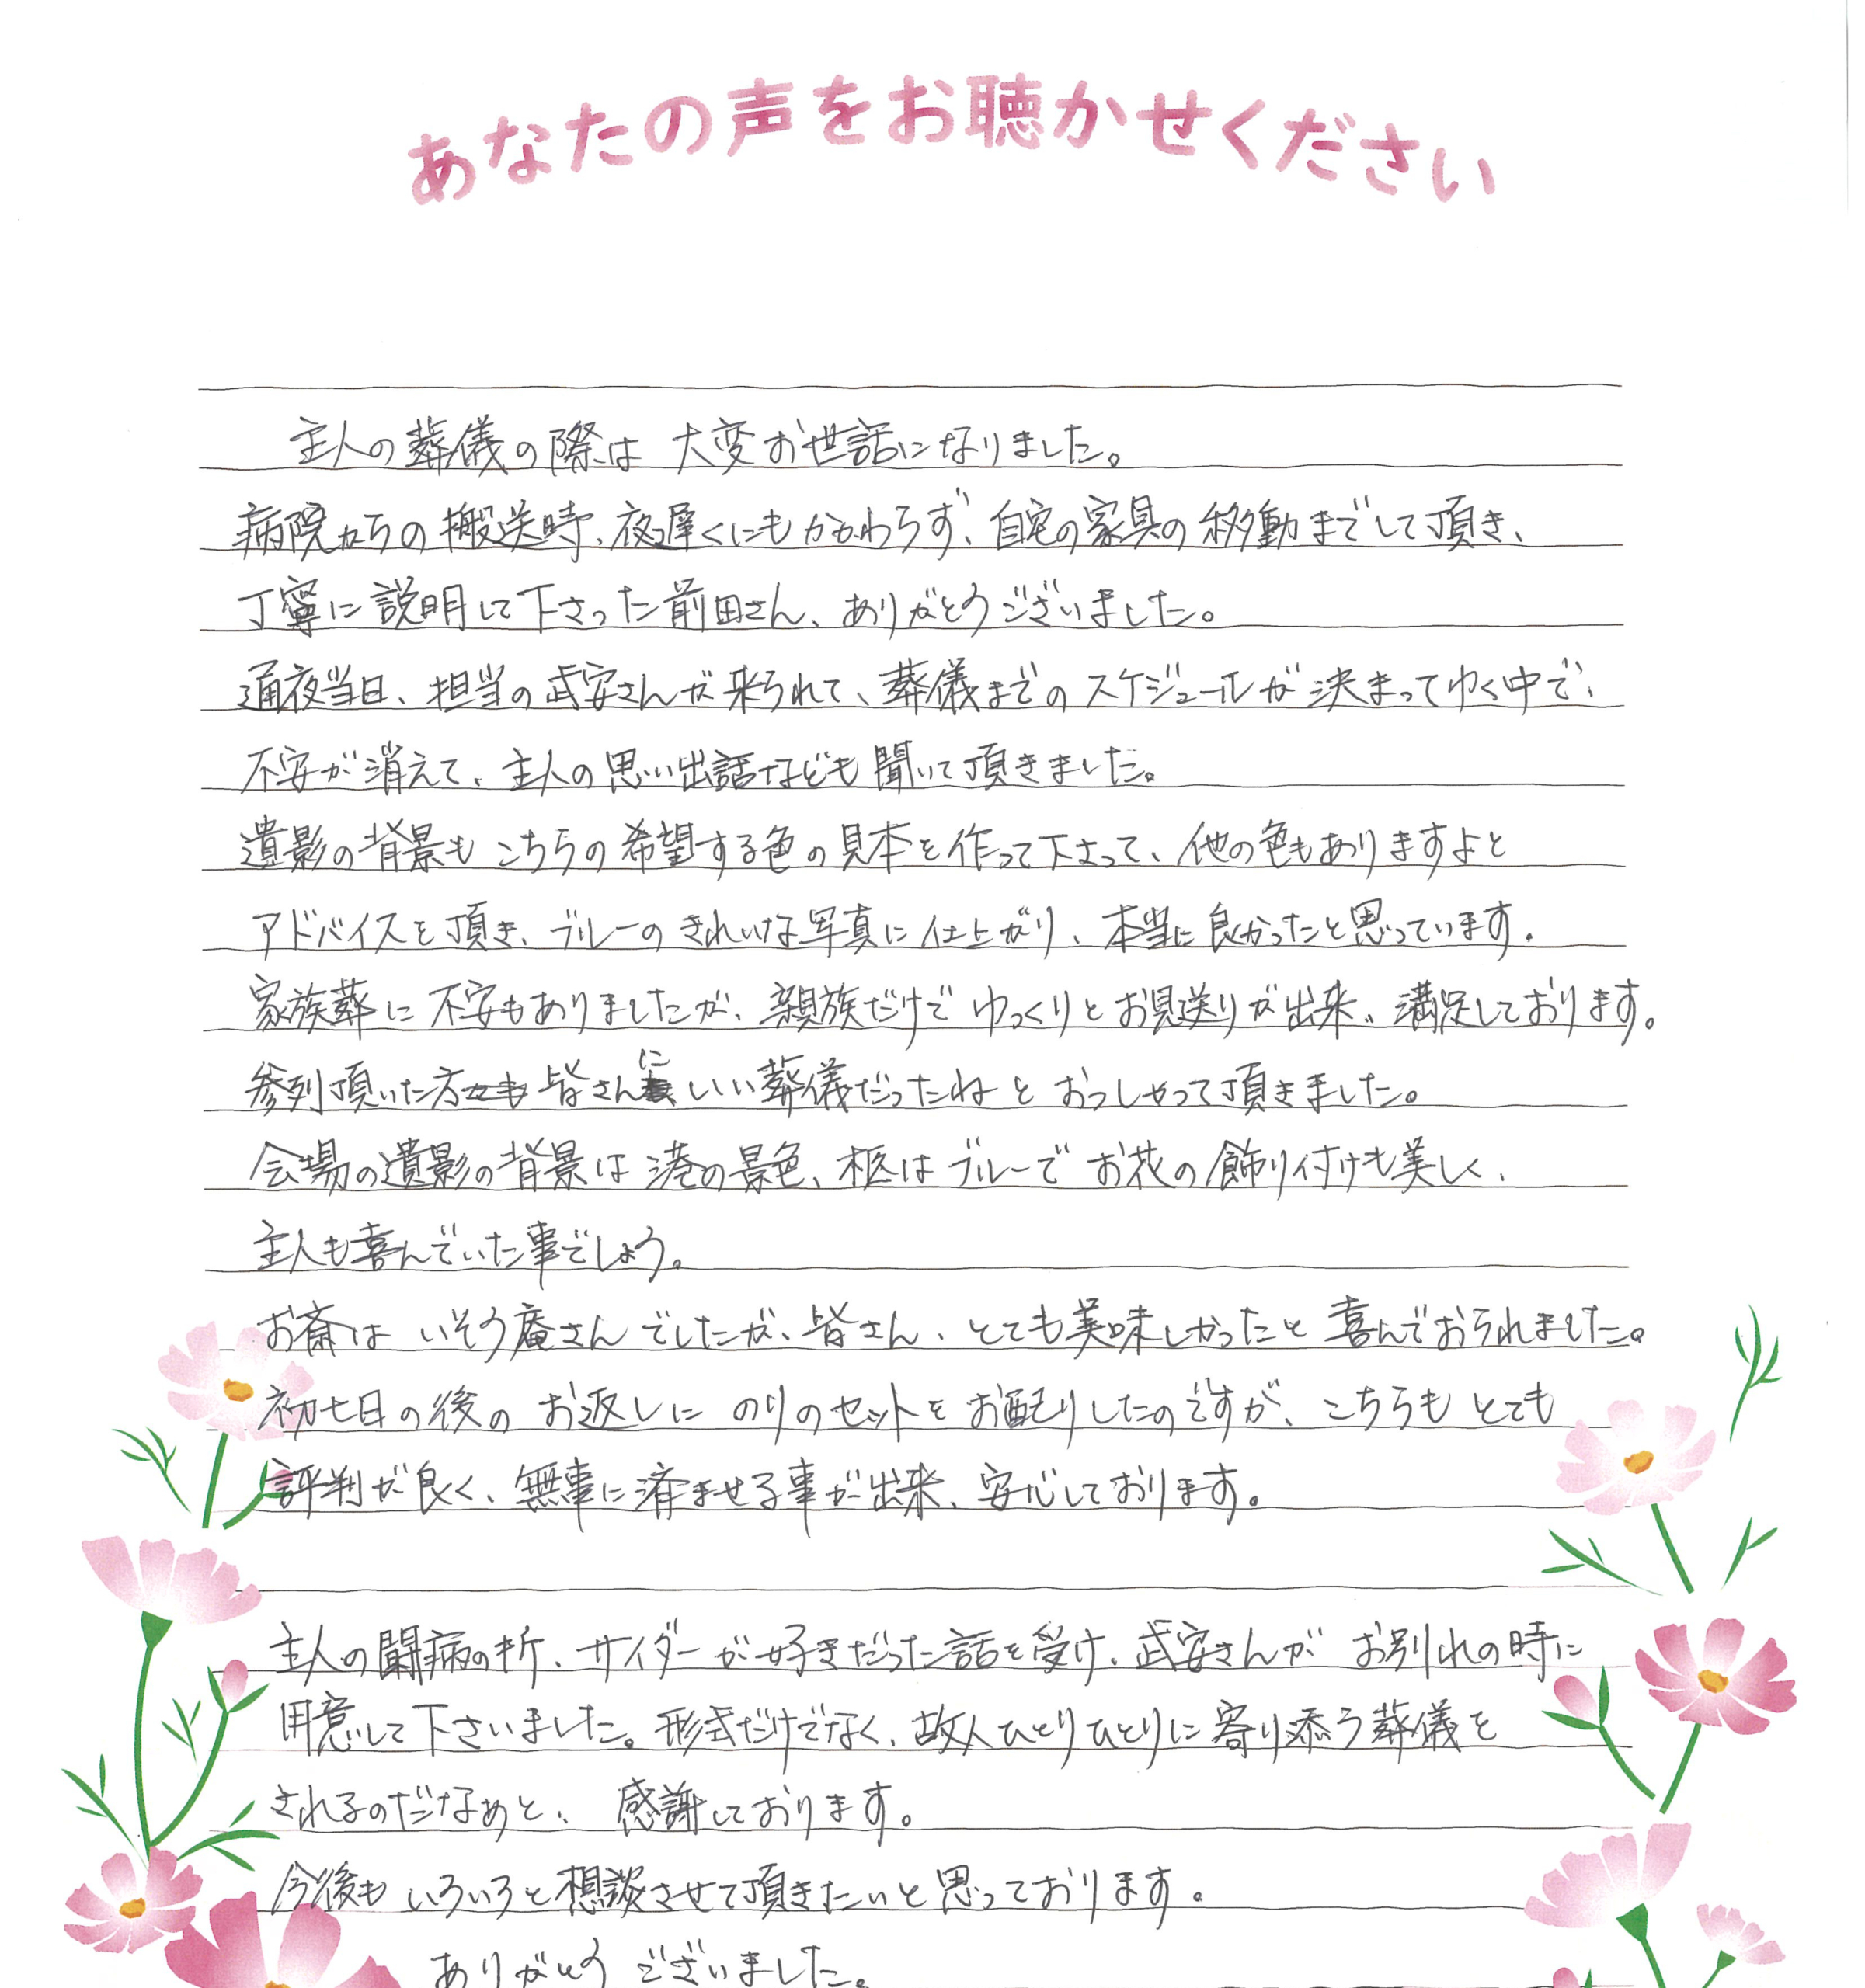 あなたの声をお聴かせください
主人の葬儀の際は 大変お世話になりました。
病院からの搬送時、夜遅くにもかかわらず、自宅の家具の移動までして頂き、
丁寧に説明して下さった前田さん、ありがとうございました。
通夜当日、担当の武安さんが来られて、葬儀までのスケジュールが決まってゆく中で、
不安が消えて、主人の思い出話なども聞いて頂きました。
遺影の背景もこちらの希望する色の見本を作って下さって、他の色もありますよと
アドバイスを頂き、ブルーのきれいな写真に仕上がり、本当に良かったと思っています。
家族葬に不安もありましたが、親族だけでゆっくりとお見送りが出来、満足しております。
参列頂いた方 皆さんにいい葬儀だったねとおっしゃって頂きました。
会場の遺影の背景は港の景色、柩はブルーでお花の飾り付けも美しく、
主人も喜んでいた事でしょう。
お斎は いそう庵さんでしたが、皆さん、とても美味しかったと喜んでおられました。
初七日の後の お返しに のりのセットをお配りしたのですが、こちらもとても
評判が良く、無事に済ませる事が出来、安心しております。
主人の闘病の折、サイダーが好きだった話を受け、武安さんが お別れの時に
用意して下さいました。形式だけでなく、故人ひとりひとりに寄り添う葬儀を
されるのだなぁと、 感謝しております。
今後も いろいろと想談させて頂きたいと思っております。
ありがとう ございました。